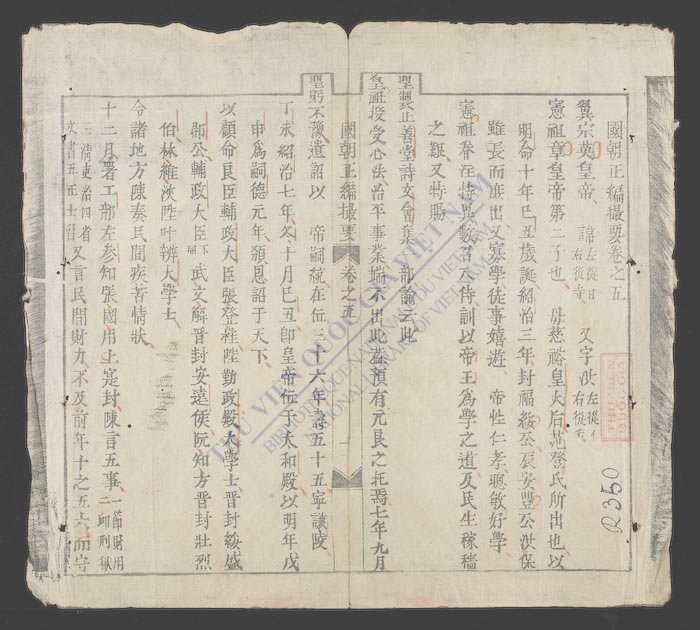 國朝正編撮要卷之五
翼宗英皇帝 諱左從日右從寺 又字洪左從亻右從壬
憲祖章皇帝第二子也 母慈裕皇太后范登氏所出也以
明命十年己丑歲誕紹治三年封福綏公辰安豐公洪保
雖長而庶出又寡學徒事嬉遊 帝性仁孝聰敏好學
憲祖眷注特異數召入侍訓以帝王爲學之道及民生稼穡
之艱又特賜
聖製止善堂詩文會集一部諭云此
皇祖授受心法治平事業端不出此盖預有元良之托焉七年九月
國朝正編撮要 卷之五 一
聖躬不豫遺詔以 帝嗣統在位三十六年壽五十五寧謙陵
丁未紹治七年冬十月己丑卽皇帝位于太和殿以明年戊
申爲嗣德元年頒恩詔于天下
以顧命良臣輔政大臣張登桂陞勤政殿大學士晉封綏盛
郡公輔政大臣下同武文解晉封安遠侯阮知方晉封壯烈
伯林維浹陞叶辨大學士
令諸地方陳奏民間疾苦情狀
十二月署工部左參知張國用上寔封陳言五事一節財用二卹刑獄
三淸吏治四省文書五正士習又言民間財力不及前年十之五六而守
THƯ VIỆN QUỐC GIA VIỆT NAM
BIBLIOTHEQUE NATIONALE DU VIETNAM
NATIONAL LIBRARY OF VIETNAM
THƯ VIỆN
QUỐC GIA
R350